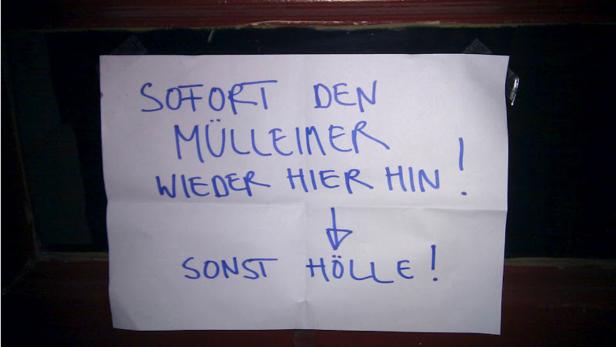 SOFORT DEN
MÜLLEIMER
WIEDER HIER HIN!
↓
SONST HÖLLE!